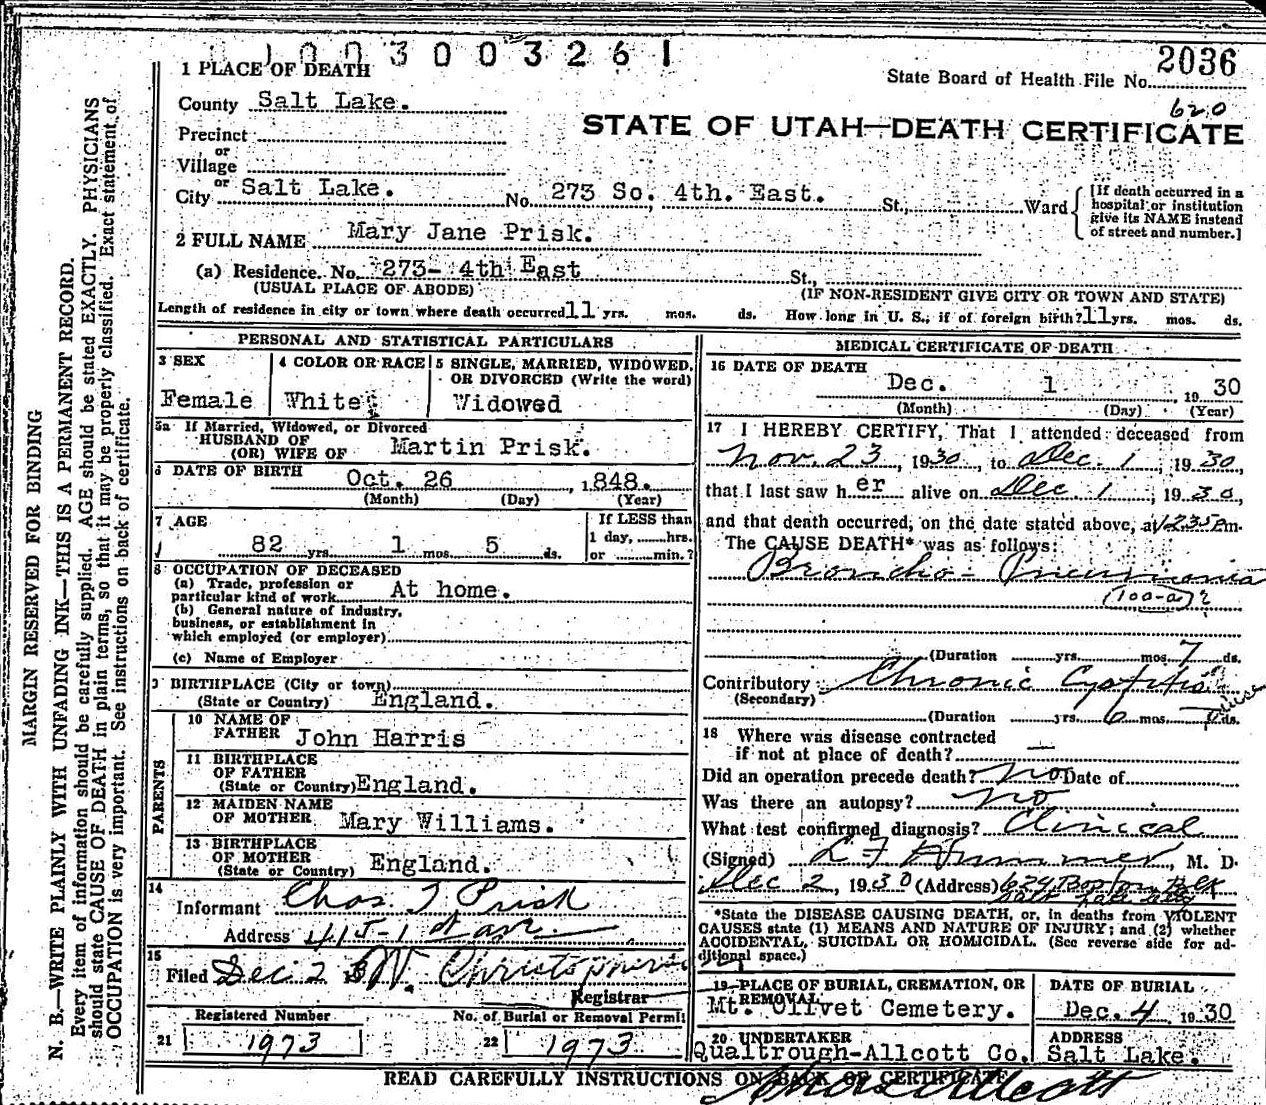 1003003261
2036
1 PLACE OF DEATH
State Board of Health File No.
County Salt Lake.
620
STATE OF UTAH—DEATH CERTIFICATE
Precinct
or
Village
or
City Salt Lake. No. 273 So. 4th. East. St., Ward
[If death occurred in a
hospital or institution
give its NAME instead
of street and number.]
2 FULL NAME Mary Jane Prisk.
(a) Residence. No. 273- 4th East St.,
(USUAL PLACE OF ABODE) (IF NON-RESIDENT GIVE CITY OR TOWN AND STATE)
Length of residence in city or town where death occurred 11 yrs. mos. ds. How long in U. S., if of foreign birth? 11 yrs. mos. ds.
PERSONAL AND STATISTICAL PARTICULARS
3 SEX
Female
4 COLOR OR RACE
White
5 SINGLE, MARRIED, WIDOWED,
OR DIVORCED (Write the word)
Widowed
5a If Married, Widowed, or Divorced
HUSBAND OF
(OR) WIFE OF Martin Prisk.
6 DATE OF BIRTH Oct. 26, 1848.
(Month) (Day) (Year)
7 AGE
82 yrs. 1 mos. 5 ds.
If LESS than
1 day, ......hrs.
or ........min.?
8 OCCUPATION OF DECEASED
(a) Trade, profession or
particular kind of work At home.
(b) General nature of industry,
business, or establishment in
which employed (or employer)
(c) Name of Employer
9 BIRTHPLACE (City or town)
(State or Country) England.
PARENTS
10 NAME OF
FATHER John Harris
11 BIRTHPLACE
OF FATHER
(State or Country) England.
12 MAIDEN NAME
OF MOTHER Mary Williams.
13 BIRTHPLACE
OF MOTHER
(State or Country) England.
14
Informant Chas. T Prisk
Address 415-1st ave
15
Filed Dec 2
Registrar
Registered Number
21 1973
No. of Burial or Removal Permit
22 1973
MEDICAL CERTIFICATE OF DEATH
16 DATE OF DEATH
Dec. 1 1930
(Month) (Day) (Year)
17 I HEREBY CERTIFY, That I attended deceased from
Nov. 23, 1930, to Dec. 1, 1930,
that I last saw her alive on Dec 1, 1930,
and that death occurred, on the date stated above, at 1235 P.m.
The CAUSE DEATH* was as follows:
Broncho-Pneumonia
(100-a)?
(Duration yrs. mos. 7 ds.
Contributory Chronic Cystitis
(Secondary)
(Duration yrs. 6 mos. ds.
18 Where was disease contracted
if not at place of death? —
Did an operation precede death? No Date of
Was there an autopsy? No
What test confirmed diagnosis? Clinical
(Signed) L F Hummer, M. D.
Dec 2, 1930 (Address) 624 Boston Blk
Salt Lake City
*State the DISEASE CAUSING DEATH, or, in deaths from VIOLENT
CAUSES state (1) MEANS AND NATURE OF INJURY; and (2) whether
ACCIDENTAL, SUICIDAL OR HOMICIDAL. (See reverse side for ad-
ditional space.)
19 PLACE OF BURIAL, CREMATION, OR
REMOVAL
Mt. Olivet Cemetery.
DATE OF BURIAL
Dec. 4 1930
20 UNDERTAKER
Qualtrough-Allcott Co.
ADDRESS
Salt Lake.
READ CAREFULLY INSTRUCTIONS ON BACK OF CERTIFICATE
MARGIN RESERVED FOR BINDING
N. B.—WRITE PLAINLY WITH UNFADING INK—THIS IS A PERMANENT RECORD.
Every item of information should be carefully supplied. AGE should be stated EXACTLY. PHYSICIANS
should state CAUSE OF DEATH in plain terms, so that it may be properly classified. Exact statement of
OCCUPATION is very important. See instructions on back of certificate.